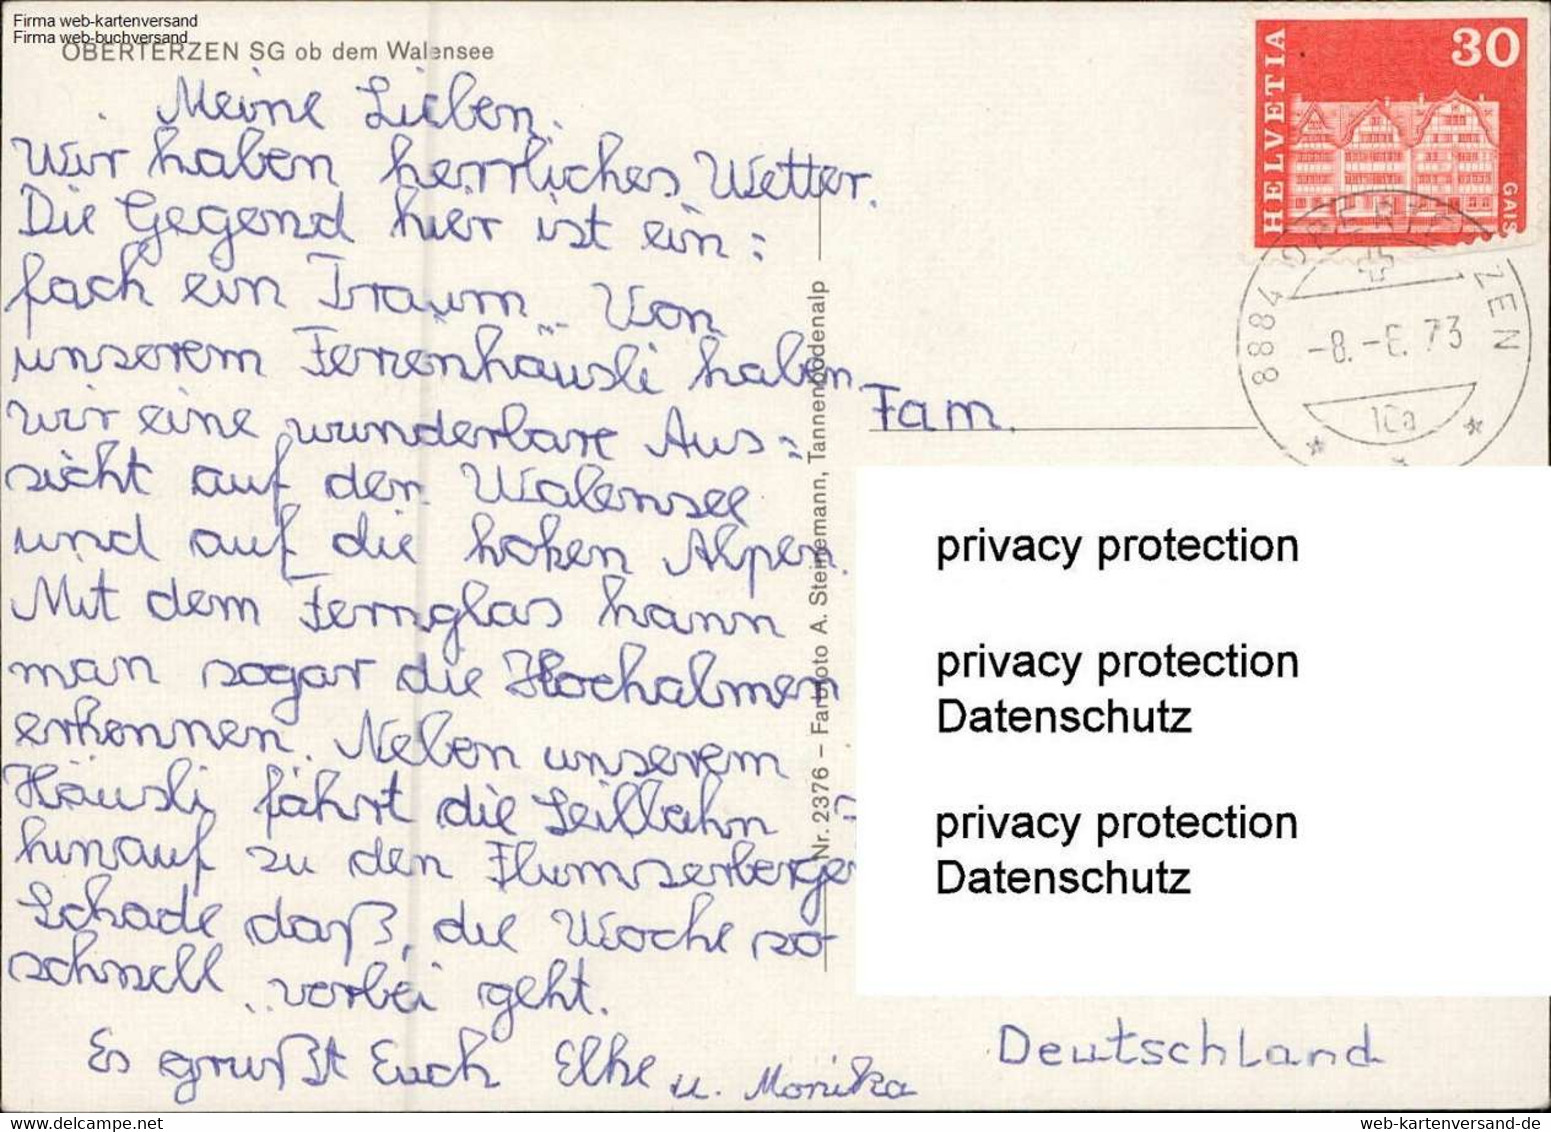 Firma web-kartenversand
Firma web-buchversand
OBERTERZEN SG ob dem Walensee
Meine Lieben.
Wir haben herrliches Wetter.
Die Gegend hier ist ein=
fach ein Traum. Von
unserem Ferienhäusli haben
wir eine wunderbare Aus=
sicht auf den Walensee
und auf die hohen Alpen.
Mit dem Fernglas kann
man sogar die Hochalmen
erkennen. Neben unserem
Häusli fährt die Seilbahn
hinauf zu den Flumserbergen
Schade daß, die Woche so
schnell vorbei geht.
Es grüßt Euch Elke u. Monika
Nr. 2376 – Farbfoto A. Steinemann, Tannenbodenalp
HELVETIA
30
GAIS
8884 OBERTERZEN
-8.-6.73
10a
Fam.
privacy protection
privacy protection
Datenschutz
privacy protection
Datenschutz
Deutschland
web-kartenversand-de